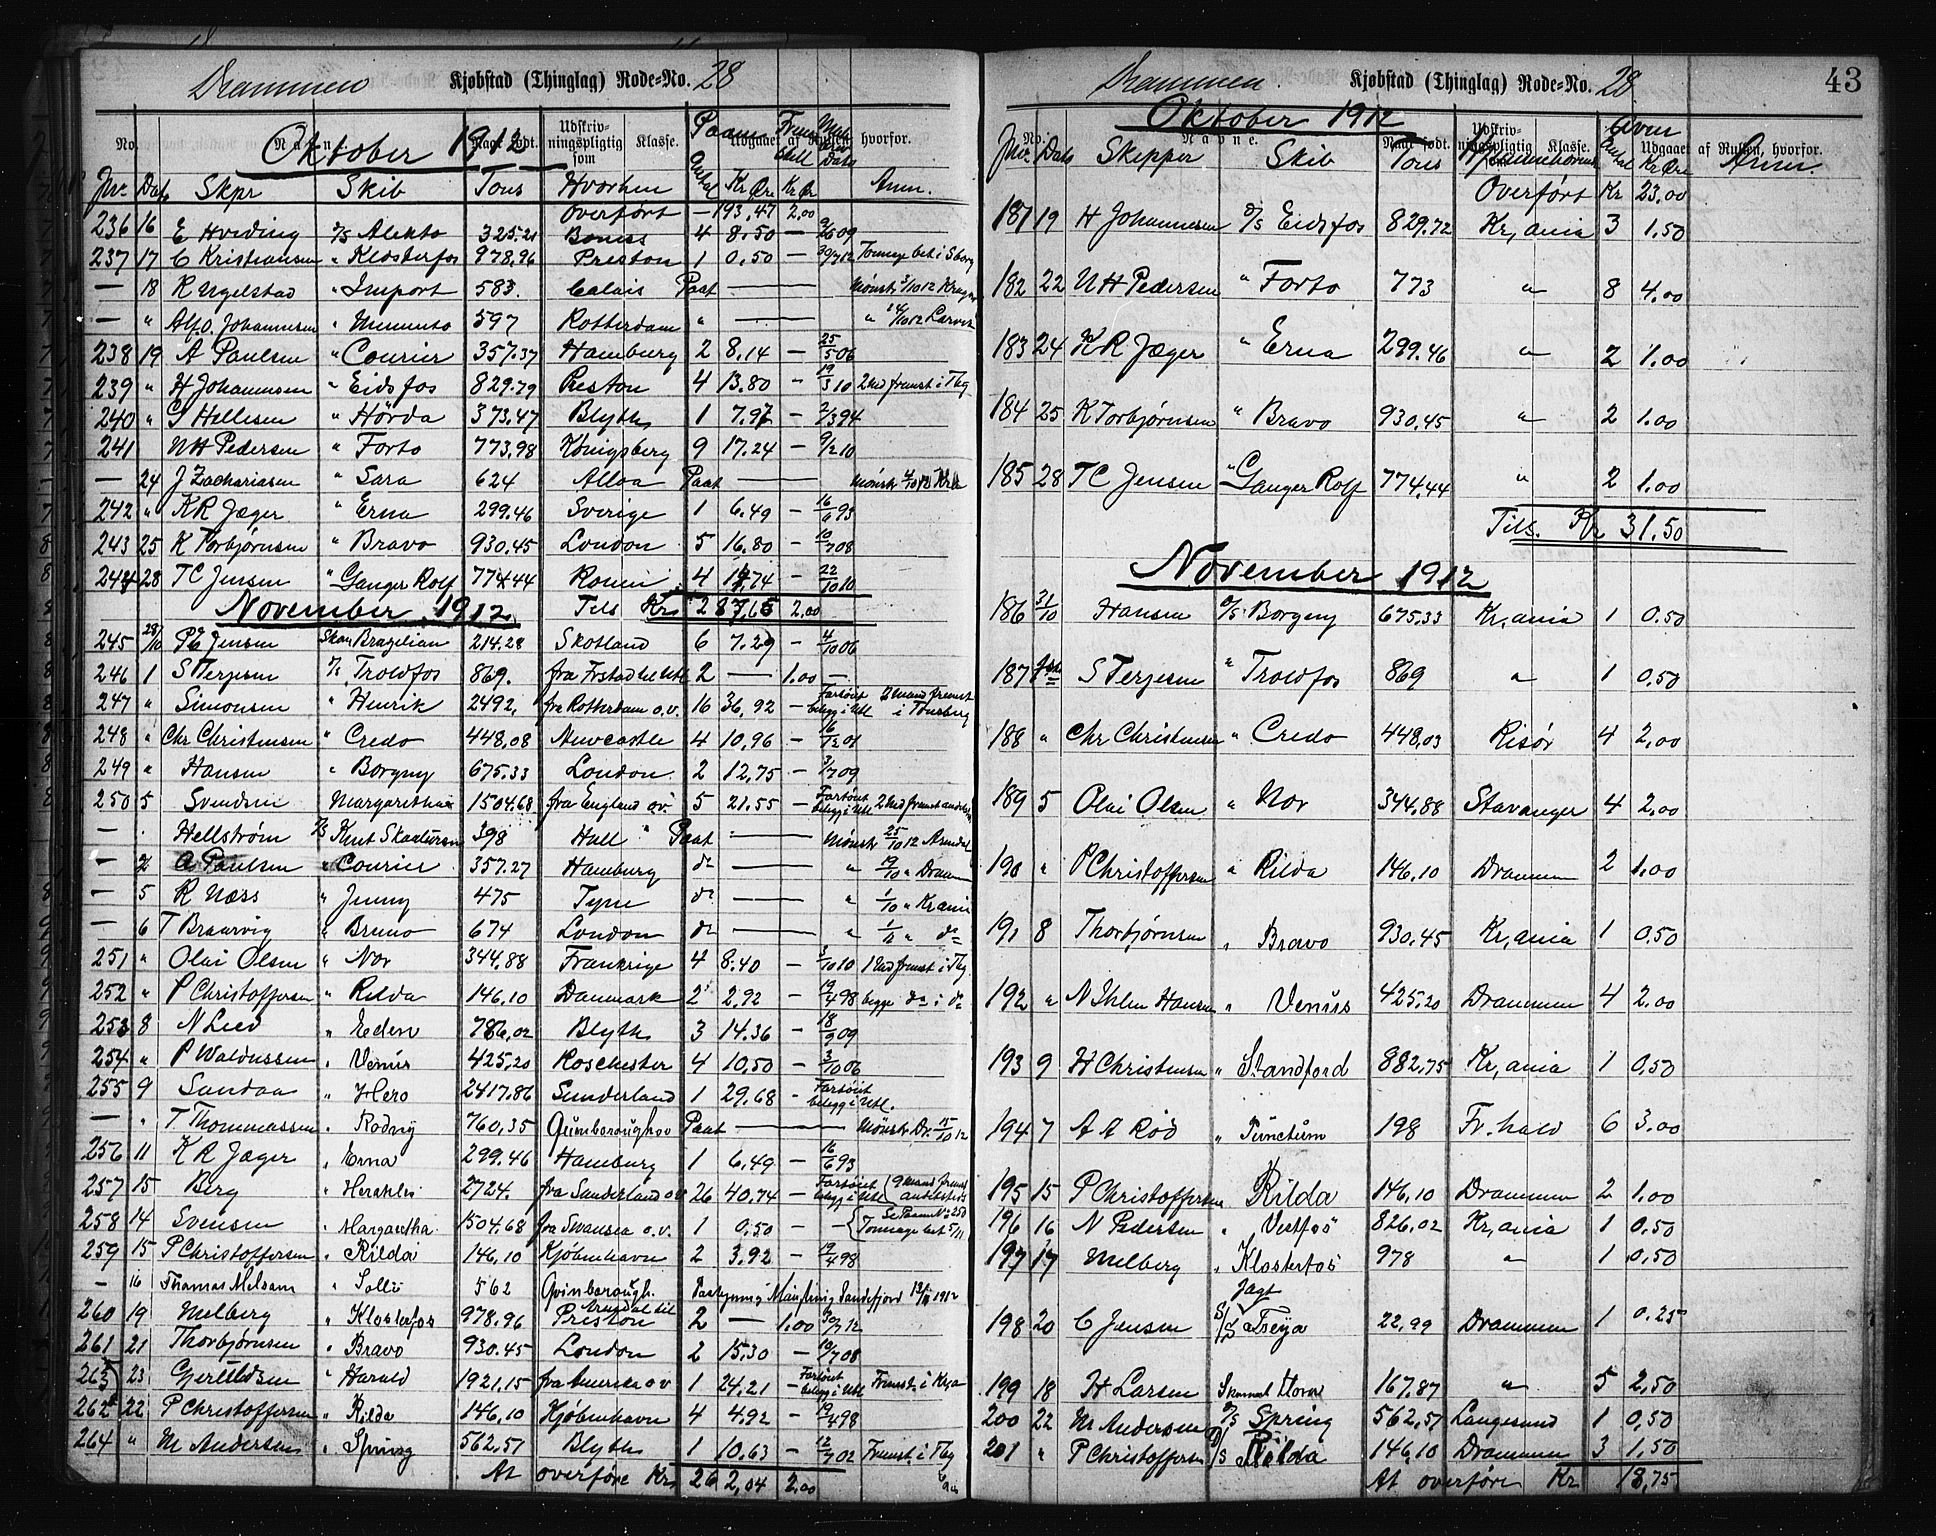 Drammen Kjøbstad (Thinglag) Rode=No. 28
Oktober 1912
No. Navn. Naar født. Udskriv-ningspligtig som Klasse. Udgaaet af Rullen, hvorfor.
Jnr. Dato Skpr Skib Tons Hvorhen Antal Kr Øre Kr Ør Anm.
Overført — 193,47 2,00
236 16 E Hviding D/S Alekto 325.21 4 8,50 —
237 17 C Kristiansen " Klosterfos 978,96 Preston 1 0,50 — Tonnage bet i Sborg
— 18 R Ugelstad " Import 583. Calais Paat — Mønstr 3/10 12
— " Alf O. Johannesen " Memento 597 Rotterdam " — " 10 12 Larvik
238 19 A Paulsen " Courier 357.37 Hamburg 2 8,14 — 25/5 06
239 " H Johannesen " Eidsfos 829.79 Preston 4 13.80 — 19/3 10 2 Md fremst i Tbg
240 " Hellesen " Hörda 373,47 Blyth 1 7.97 — 2/3 94
241 NH Pedersen " Forto 773,98 Königsberg 9 17.24 — 9/2 10
— 24 J Zachariasen " Sara 624 Alloa Paat — Mønstr 4/10 12 Kra
242 " KR Jæger " Erna 299.46 Sverige 1 6.49 — 16/6 93
243 25 K Torbjørnsen " Bravo 930.45 London 5 16.80 — 10/7 08
244 28 TC Jensen " Ganger Rolf 774.44 Rouen 4 — 22/10 10
November 1912 Tils Kr 287,65 2.00
245 28/10 Jensen Skon Brazilian 214.28 Skotland 6 7.29 — 4/10 06
246 1 S Terjesen D/S Troldfos 869. fra Frstad til Utl 2 — 1.00 —
247 " Simonsen " Henrik 2492, fra Rotterdam o.v. 16 36,92 — Fartöiet belegg i Utl 2 mand fremst i Tønsberg
248 " Chr Christensen " Credo 448,08 Newcastle 4 10,96 — 16/12 01
249 " Hansen " Borgny 675.33 London 2 12,75 — 3/7 09
250 5 Svendsen Margaretha 1504.68 fra England ov. 5 21.55 — Fartöiet belegg i Utl 2 Md fremst andetsteds
— . Hellström D/S Knut Skaaluren 398 Hull Paat — Mønstr 25/10 12 Arendal
— 2 A Paulsen " Courier 357.27 Hamburg do — " 19/10 " Dramm
— 5 R Næss " Jenny 475 Tyne do — " 1/10 " Krania
— 6 T Braarvig " Bruno 674 London do — " " do
251 " Olai Olsen " Nor 344.88 Frankrige 4 8.40 — 3/10 10 1 Md fremst i Tbg
252 " P Christoffersen " Rilda 146,10 Danmark 2 2,92 — 19/4 98 begge do i do
253 8 N Lied " Eden 786,02 Blyth 3 14.36 — 18/9 09
254 " P Waldussen " Venus 425,20 Roschester 4 10,50 — 3/10 06
255 9 Sandaa " Hero 2417.86 Sunderland 1 29.68 — Fartöiet belegg i Utl.
— " T Thommassen " Rodny 760,35 Quinboroughov Paat — Mønstr Dr. 15/10 12
256 11 K R Jæger " Erna 299.46 Hamburg 1 6.49 — 16/6 93
257 15 Berg " Herakles 2724. fra Sunderland o v 26 40.74 — Fartöiet belegg i Utl 9 mand fremst andetsteds
258 14 Svensen " Margaretha 1504.68 fra Swansea o.v. 1 0,50 — — Se Paam No 250 Tonnage bet. 5/11
259 15 P Christoffersen " Rilda 146,10 Kjøbenhavn 2 3.92 — 19/4 98
— 16 Thomas Melsom " Solli 562 Quinborough. Paategning i Sandefjord 1912
260 19 Melberg " Klosterfos 978,96 Arendal til Preston 2 — 1.00 30/7 12
261 21 Thorbjørnsen " Bravo 930.45 London 2 15.30 — 10/7 08
263 23 " Harald 1921,15 fra Amerika o v 1 24,21 — Fartöiet belegg i Utl Fremst. i Kr,a
262 22 P Christoffersen " Rilda 146,10 Kjøbenhavn 4 4.92 — 19/4 98
264 " M Andersen " Spring 562,57 Blyth 1 10.63 — 12/7 02 Fremst. i Tbg
At overføre Kr 262,04 2.00
Drammen Kjøbstad (Thinglag) Rode=No. 28 43
Oktober 1912
No. Navne. Naar født. Udskriv-ningspligtig Klasse. Udgaaet af Rullen, hvorfor.
Jnr. Dato Skipper Skib Tons Hjemmehørende Antal Kr Øre Anm.
Overført Kr 23,00
181 19 H Johannesen D/S Eidsfos 829.72 Kr,ania 3 1,50
182 22 NH Pedersen " Forto 773 " 8 4,00
183 24 KR Jæger " Erna 299.46 " 2 1.00
184 25 K Torbjørnsen " Bravo 930.45 " 2 1.00
185 28 TC Jensen " Ganger Rolf 774.44 " 2 1.00
Tils. Kr 31.50
November 1912
186 31/10 Hansen D/S Borgny 675.33 Kr,ania 1 0.50
187 S Terjesen " Troldfos 869 " 1 0,50
188 " Chr Christensen " Credo 448,03 Risör 4 2,00
189 5 Olai Olsen " Nor 344.88 Stavanger 4 2,00
190 " P Christoffersen " Rilda 146,10 Drammen 2 1,00
191 8 Thorbjørnsen " Bravo 930.45 Kr,ania 1 0,50
192 " N Ihlen Hansen " Venus 425.20 Drammen 4 2,00
193 9 H Christensen " Standford 882,75 Kr,ania 1 0,50
194 7 A A Röd " Punctum 198 Fr.hald 6 3.00
195 15 P Christoffersen Rilda 146,10 Drammen 2 1.00
196 16 N Pedersen " Vestfos 826.02 Kr,ania 1 0.50
197 17 Melberg " Klosterfos 978 " 1 0.50
Jagt
198 20 C Jensen S/S Freya 22,99 Drammen 1 0.25
199 18 H Larsen 167.87 " 5 2,50
200 22 M Andersen D/S Spring 562,57 Langesund 1 0,50
201 " P Christoffersen D/S Rilda 146,10 Drammen 3 1.50
At overføre Kr 18,75